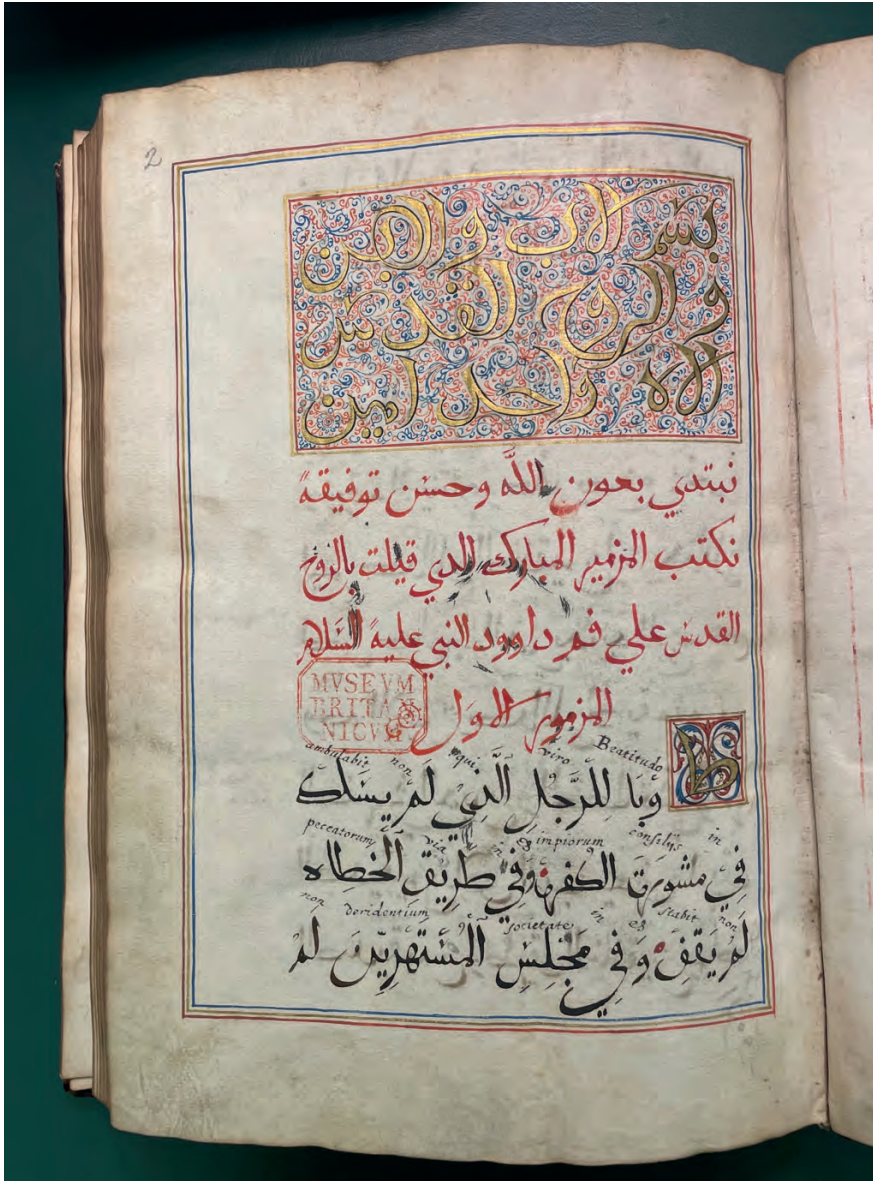 2
بسم الاب والابن
والروح القدس
الاه واحد امين
نبتدي بعون اللّه وحسن توفيقهً
نكتب المزمير المبارك الدي قيلت بالروح
القدس علي فم داوود النبي عليهً السَلام
المزمور الاوَل
MVSEVM
BRITAN
NICVM
Beatitudo viro qui non ambulabit
طوبَا لِلرَّجلِ الَّذِي لَمْ يسَلك
in consilijs impiorum & in via peccatorum
فِي مشورة الكفره وَفِي طَرِيقِ الْخطاه
non stabit & in societate deridentium non
لَمْ يَقفِ وَفِي مَجْلِسِ الْمسْتَهْزِيِنَ لَمْ